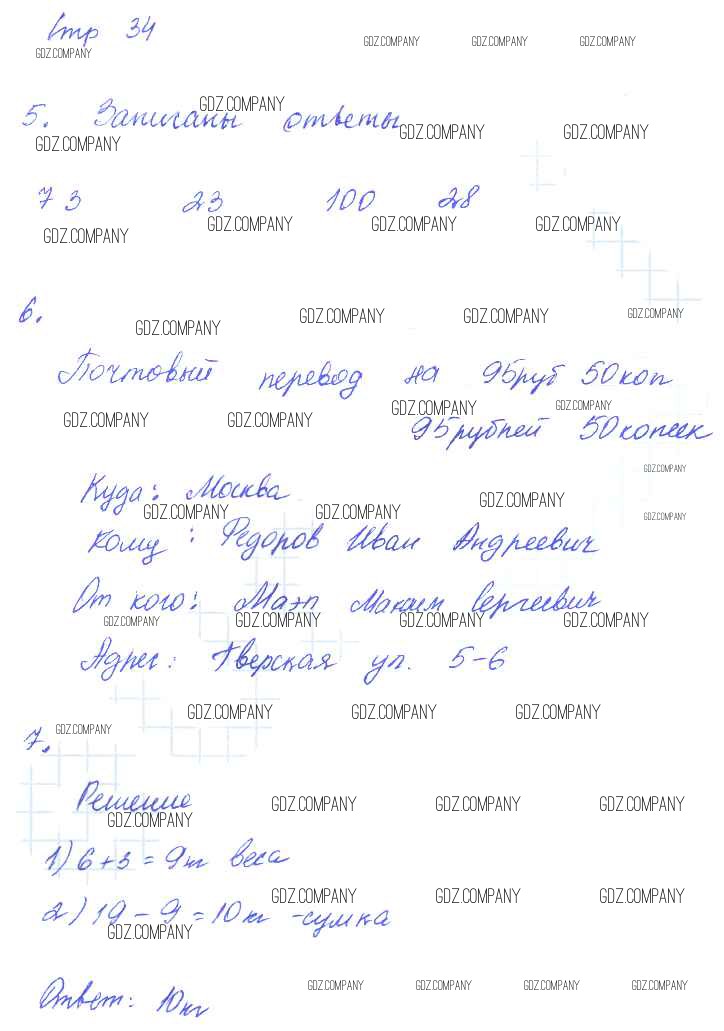 Стр 34
GDZ.COMPANY GDZ.COMPANY GDZ.COMPANY GDZ.COMPANY
GDZ.COMPANY
5. Записаны ответы
GDZ.COMPANY GDZ.COMPANY GDZ.COMPANY
73 23 100 28
GDZ.COMPANY GDZ.COMPANY GDZ.COMPANY GDZ.COMPANY
6.
GDZ.COMPANY GDZ.COMPANY GDZ.COMPANY GDZ.COMPANY
Почтовый перевод на 95руб 50коп
GDZ.COMPANY GDZ.COMPANY GDZ.COMPANY GDZ.COMPANY
95рублей 50копеек
GDZ.COMPANY
Куда: Москва
GDZ.COMPANY GDZ.COMPANY GDZ.COMPANY GDZ.COMPANY
Кому: Федоров Иван Андреевич
От кого: Маэп Максим Сергеевич
GDZ.COMPANY GDZ.COMPANY GDZ.COMPANY GDZ.COMPANY
Адрес: Тверская ул. 5-6
GDZ.COMPANY GDZ.COMPANY GDZ.COMPANY
7.
GDZ.COMPANY
Решение
GDZ.COMPANY GDZ.COMPANY GDZ.COMPANY GDZ.COMPANY
1) 6+3=9кг веса
GDZ.COMPANY GDZ.COMPANY GDZ.COMPANY
2) 19-9=10кг -сумка
GDZ.COMPANY
Ответ: 10кг
GDZ.COMPANY GDZ.COMPANY GDZ.COMPANY GDZ.COMPANY